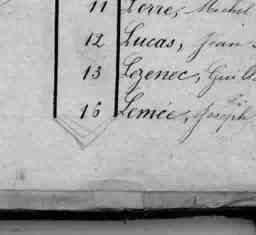 11 Lorre, Michel
12 Lucas, Jean
13 Lozenec, Guill
15 Lomée, Joseph